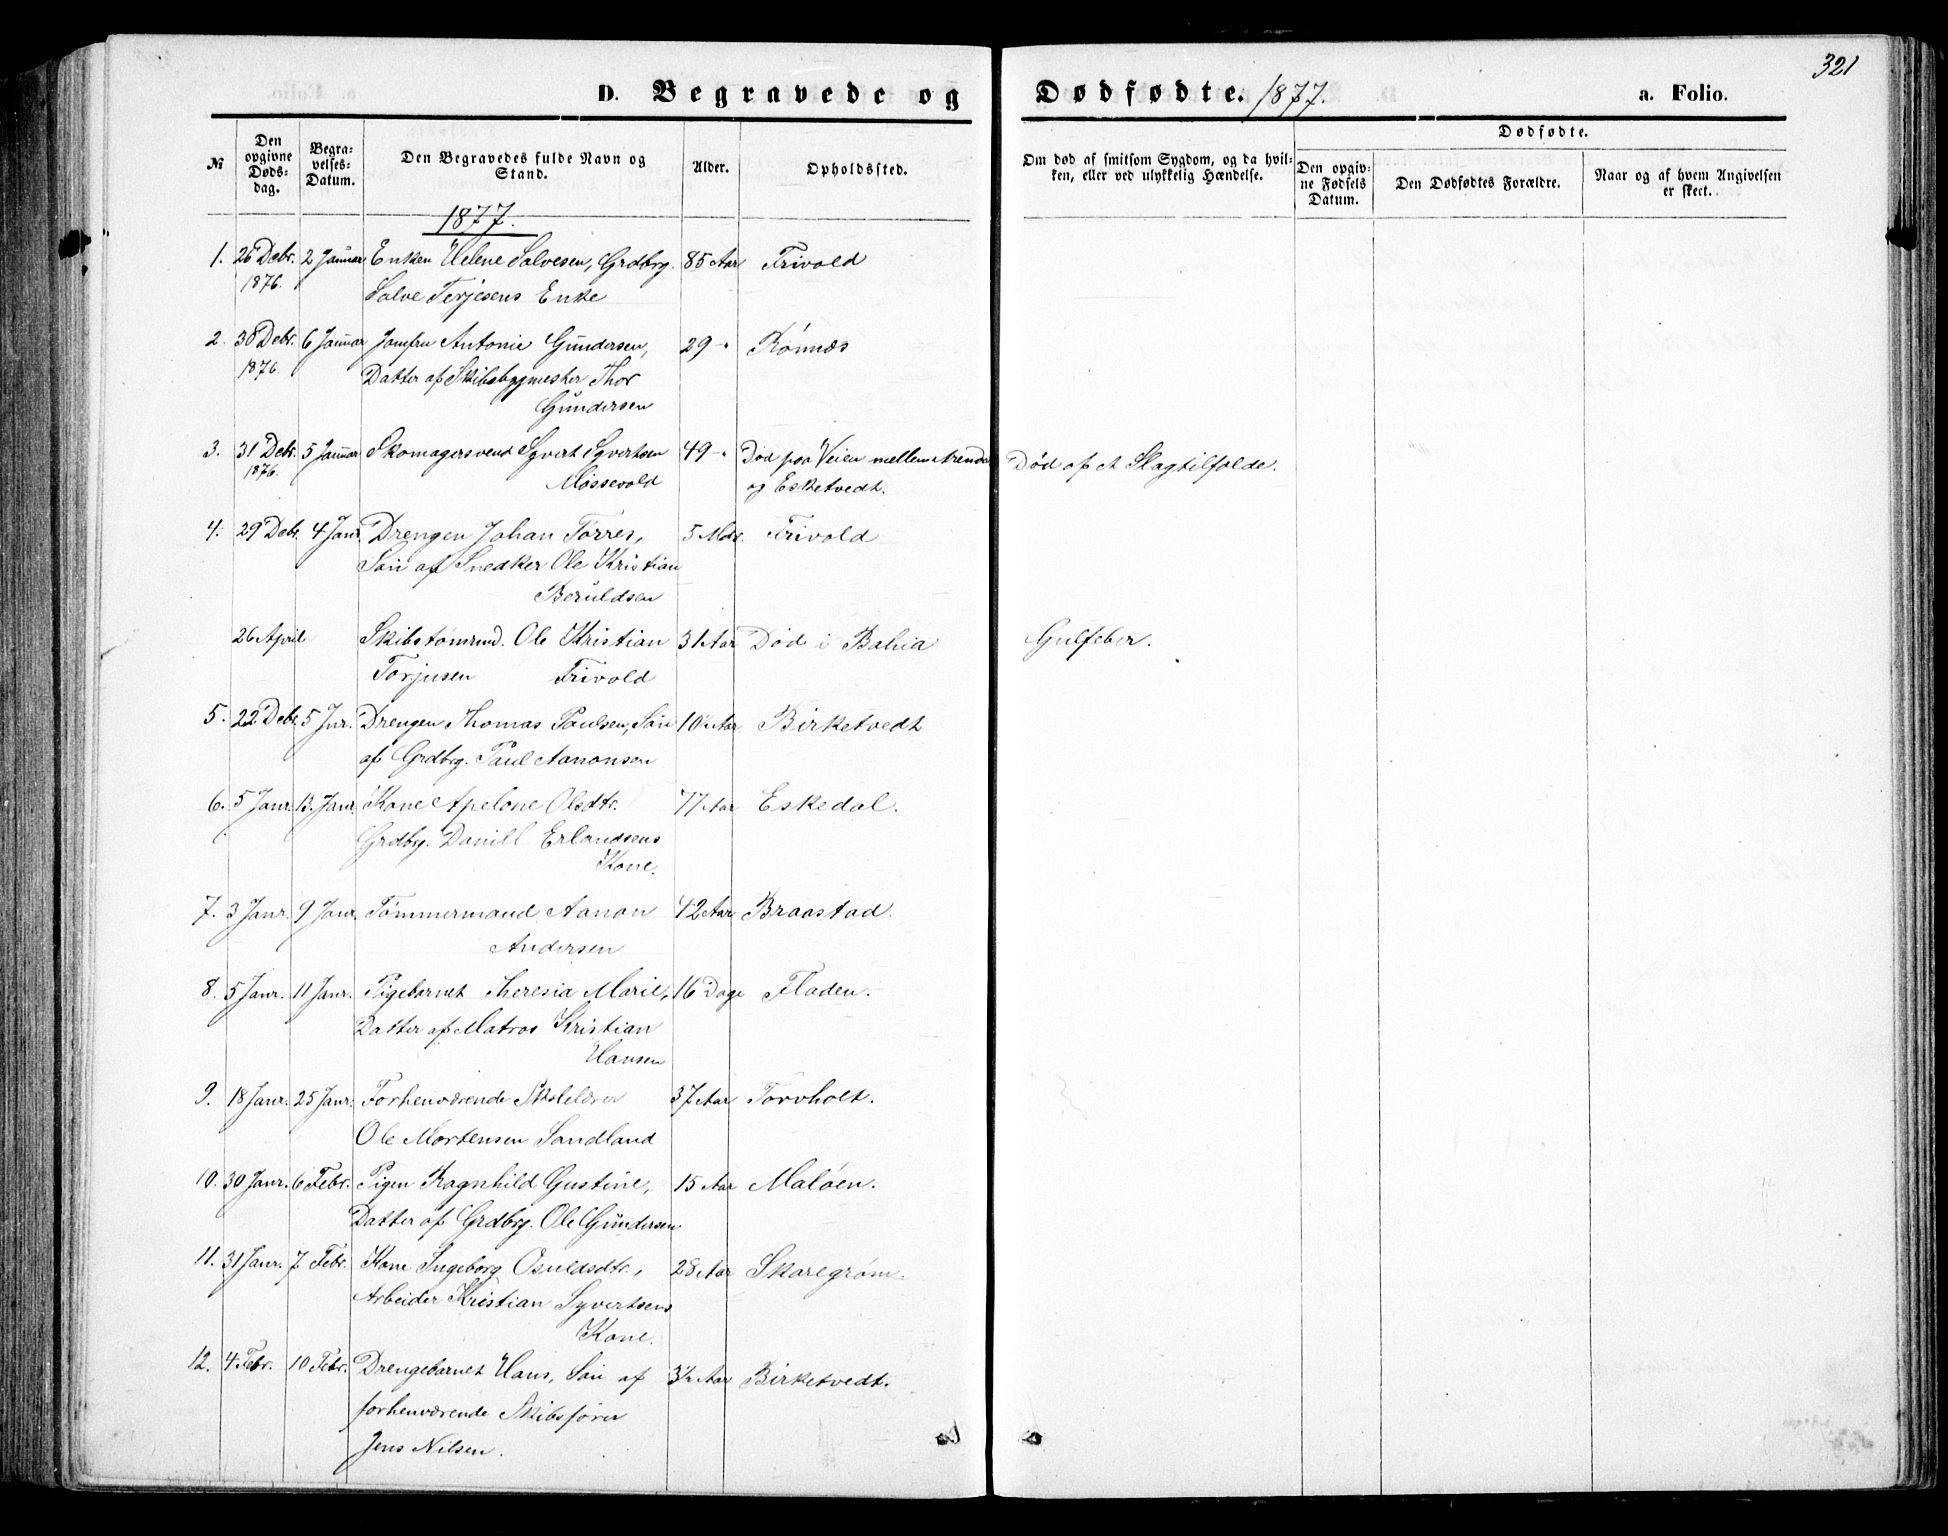 321
D. Begravede og Dødfødte. 1877. a. Folio.
№
Den opgivne Dødsdag.
Begravelses-Datum.
Den Begravedes fulde Navn og Stand.
Alder.
Opholdssted.
Om død af smitsom Sygdom, og da hvilken, eller ved ulykkelig Hændelse.
Dødfødte.
Den opgivne Fødsels Datum.
Den Dødfødtes Forældre.
Naar og af hvem Angivelsen er skeet.
1877.
1. 26 Debr. 2 Januar Enken Helene Salvesen, Grdbrg. 85 Aar Frivold
1876. Salve Terjesens Enke
2. 30 Debr. 6 Januar Jomfru Antonie Gundersen, 29 - " Rønnæs
1876. Datter af Skibsbygmester Thor
Gundersen
3. 31 Debr. 5 Januar Skomagersvend Syvert Syvertsen 49 - " Død paa Veien mellem Arendal Død af et Slagtilfælde.
1876. Mossevold og Esketvedt.
4. 29 Debr. 4 Janr. Drengen Johan Tørres, 5 Mdr. Frivold
Søn af Snedker Ole Kristian
Beruldsen
26 April Skibstømmd. Ole Kristian 31 Aar Død i Bahia Gulfeber.
Torjusen Frivold
5. 22 Debr. 5 Jnr. Drengen Thomas Paulsen, Søn 10 Aar Birketvedt
af Grdbrg. Paul Aanonsen
6. 5 Janr. 13. Janr. Kone Apelone Olsdtr. 77 Aar Eskedal.
Grdbrg. Danill Erlandsens
Kone.
7. 3 Janr. 9 Janr. Tømmermand Aanon 42 Aar Braastad.
Andersen
8. 5 Janr. 11 Janr. Pigebarnet Theresia Marie, 16 Dage Fladen.
Datter af Matros Kristian
Hansen
9. 18 Janr. 25 Janr. Forhenværende Skolelærer 37 Aar Torvholt.
Ole Mortensen Sandland
10. 30 Janr. 6 Febr. Pigen Ragnhild Gustine, 15 Aar Maløen.
Datter af Grdbrg. Ole Gundersen
11. 31 Janr. 7 Febr. Kone Ingeborg Osuldsdtr., 28 Aar Skaregrøm.
Arbeider Kristian Syvertsens
Kone.
12. 4 Febr. 10 Febr. Drengebarnet Hans, Søn af 3½ Aar Birketvedt.
forhenværende Skibsfører
Jens Nilsen.